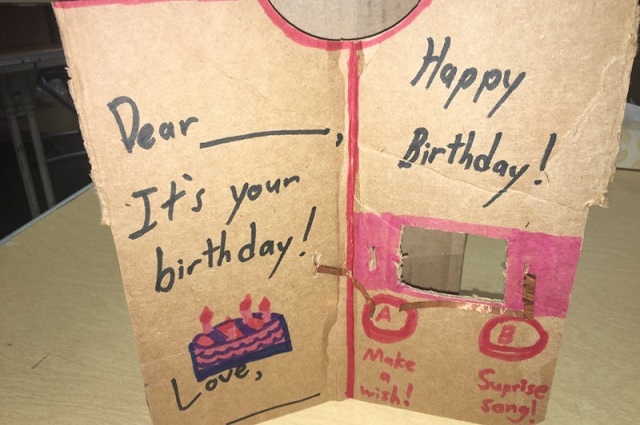 Dear ________,
It's your
birthday!
Love,
________
Happy
Birthday!
A
Make
a
wish!
B
Suprise
song!